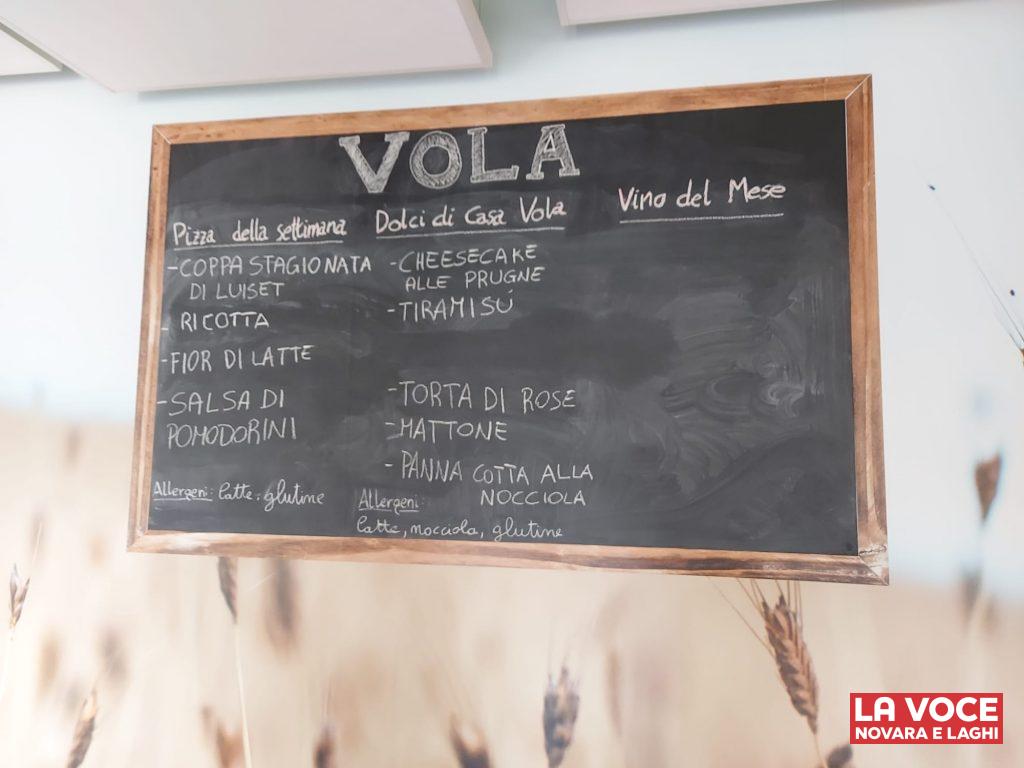 VOLA
Pizza della settimana
-COPPA STAGIONATA
DI LUISET
- RICOTTA
-FIOR DI LATTE
-SALSA DI
POMODORINI
Allergeni: latte, glutine
Dolci di Casa Vola
-CHEESECAKE
ALLE PRUGNE
-TIRAMISÚ
-TORTA DI ROSE
-MATTONE
- PANNA COTTA ALLA
NOCCIOLA
Allergeni:
latte, nocciola, glutine
Vino del Mese
LA VOCE
NOVARA E LAGHI